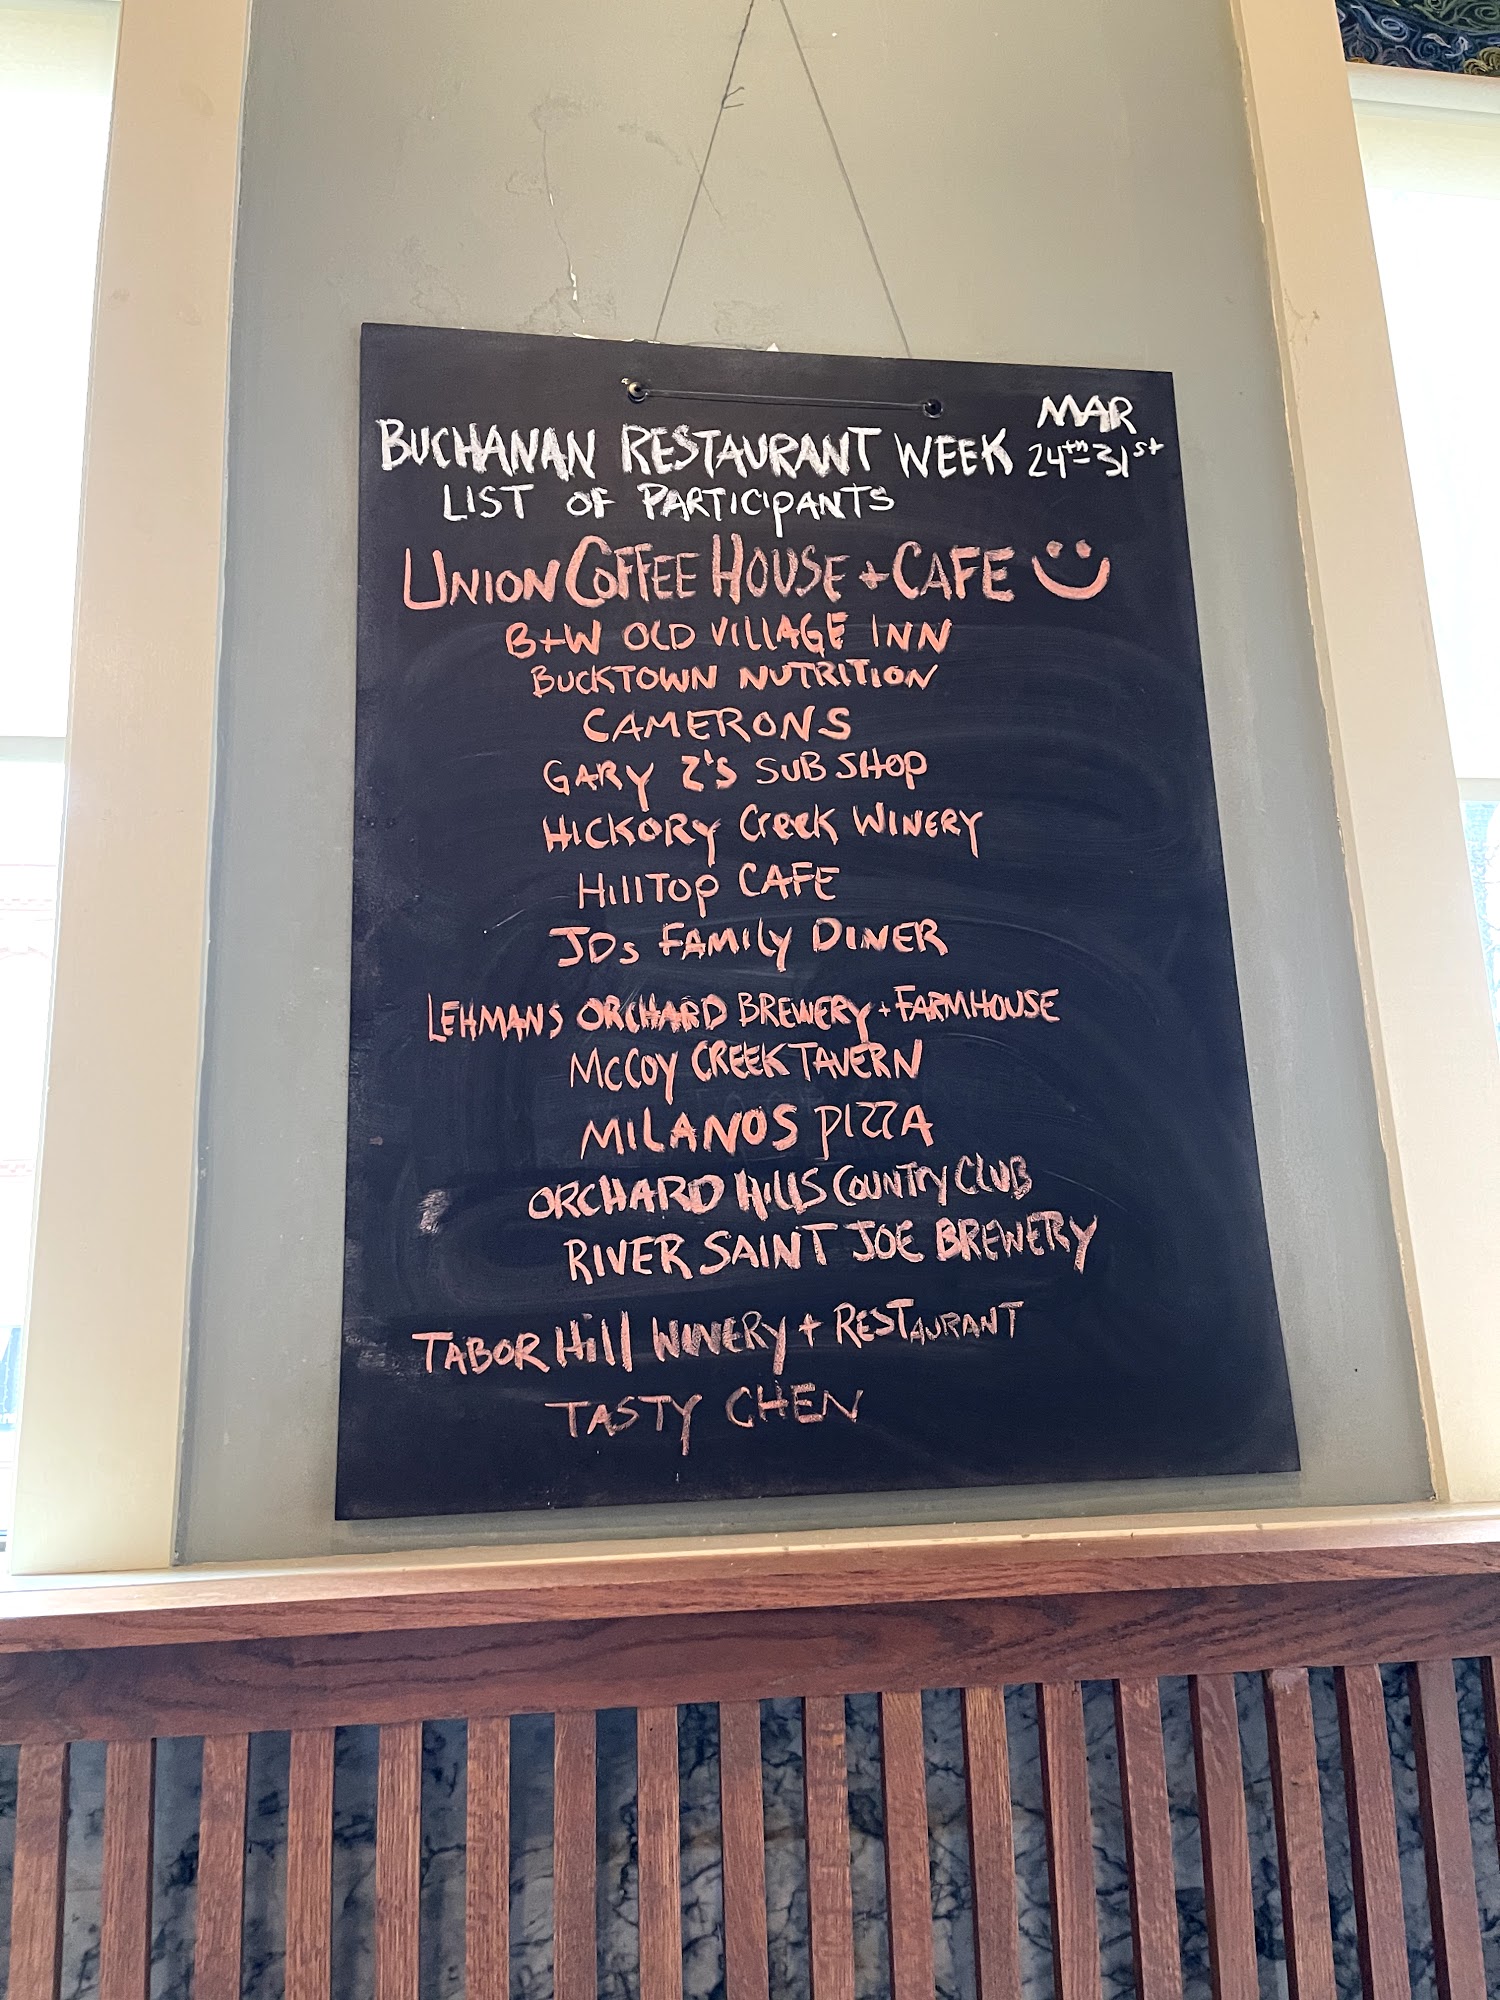 MAR
BUCHANAN RESTAURANT WEEK 24th-31st
LIST OF PARTICIPANTS
UNION COFFEE HOUSE + CAFE
B+W OLD VILLAGE INN
BUCKTOWN NUTRITION
CAMERONS
GARY Z'S SUB SHOP
HICKORY CREEK WINERY
HILLTOP CAFE
JDs FAMILY DINER
LEHMANS ORCHARD BREWERY + FARMHOUSE
McCOY CREEK TAVERN
MILANOS PIZZA
ORCHARD HILLS COUNTRY CLUB
RIVER SAINT JOE BREWERY
TABOR HILL WINERY + RESTAURANT
TASTY CHEN